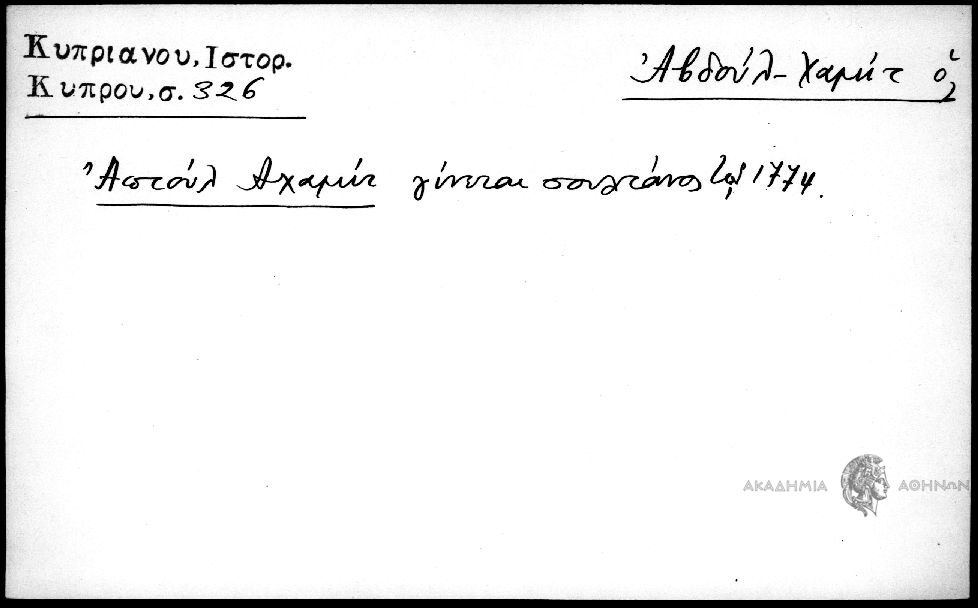 Κυπριανου, Ιστορ.
Κυπρου, σ. 326
Ἀβδούλ-Χαμίτ ὁ
Ἀπτούλ Αχαμίτ γίνεται σουλτάνος τῷ 1774.
ΑΚΑΔΗΜΙΑ ΑΘΗΝΩΝ